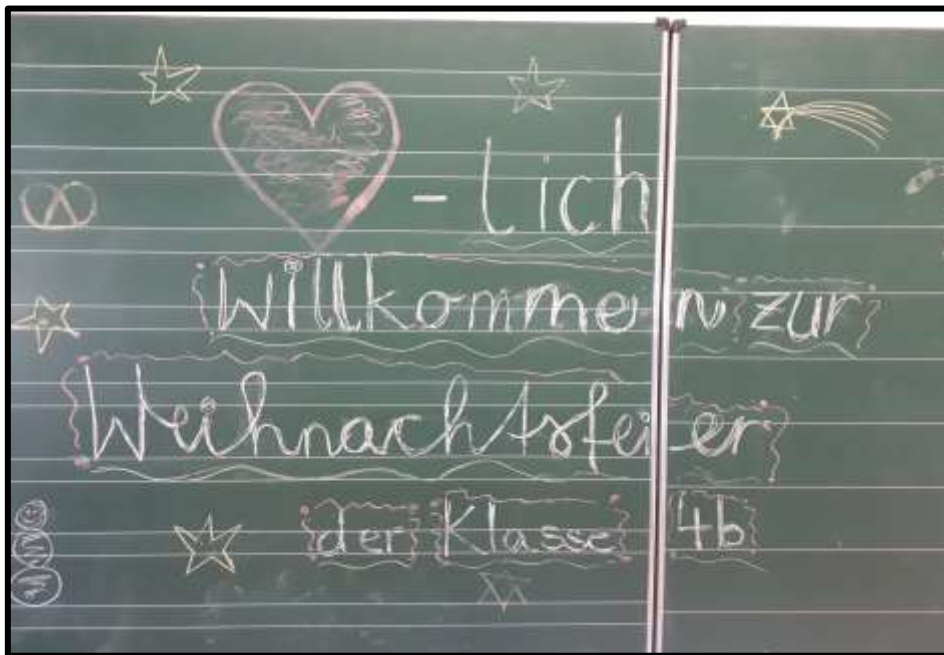 -lich
Willkommen zur
Weihnachtsfeier
der Klasse 4b